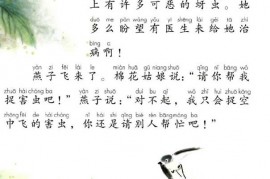 上有许多可恶的蚜虫。她
duō me pàn wàng yǒu yī shēng lái gěi tā zhì
多么盼望有医生来给她治
bìng a
病啊！
yàn zi fēi lái le mián huā gū niang shuō qǐng nǐ bāng wǒ
燕子飞来了。棉花姑娘说：“请你帮我
zhuō hài chóng ba yàn zi shuō duì bu qǐ wǒ zhǐ huì zhuō kōng
捉害虫吧！”燕子说：“对不起，我只会捉空
zhōng fēi de hài chóng nǐ hái shi qǐng bié rén bāng máng ba
中飞的害虫，你还是请别人帮忙吧！”